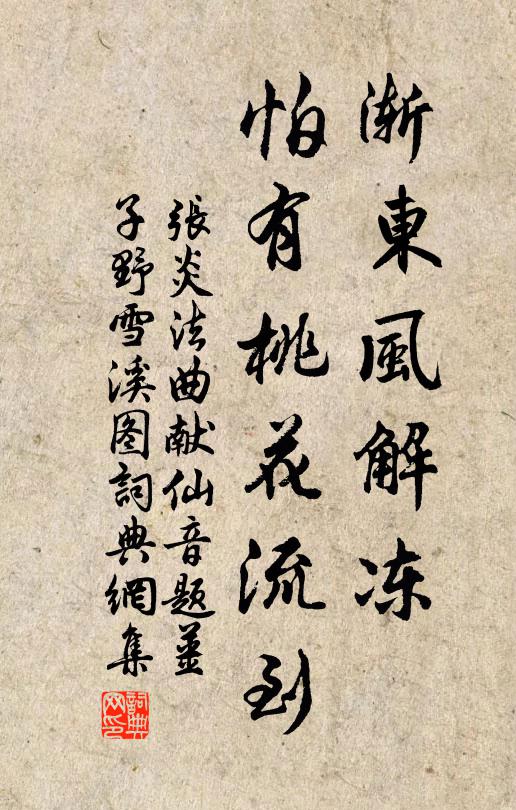 漸東風解冻
怕有桃花流到
張炎法曲献仙音题姜
子野雪溪图詞典網集
詞典网印